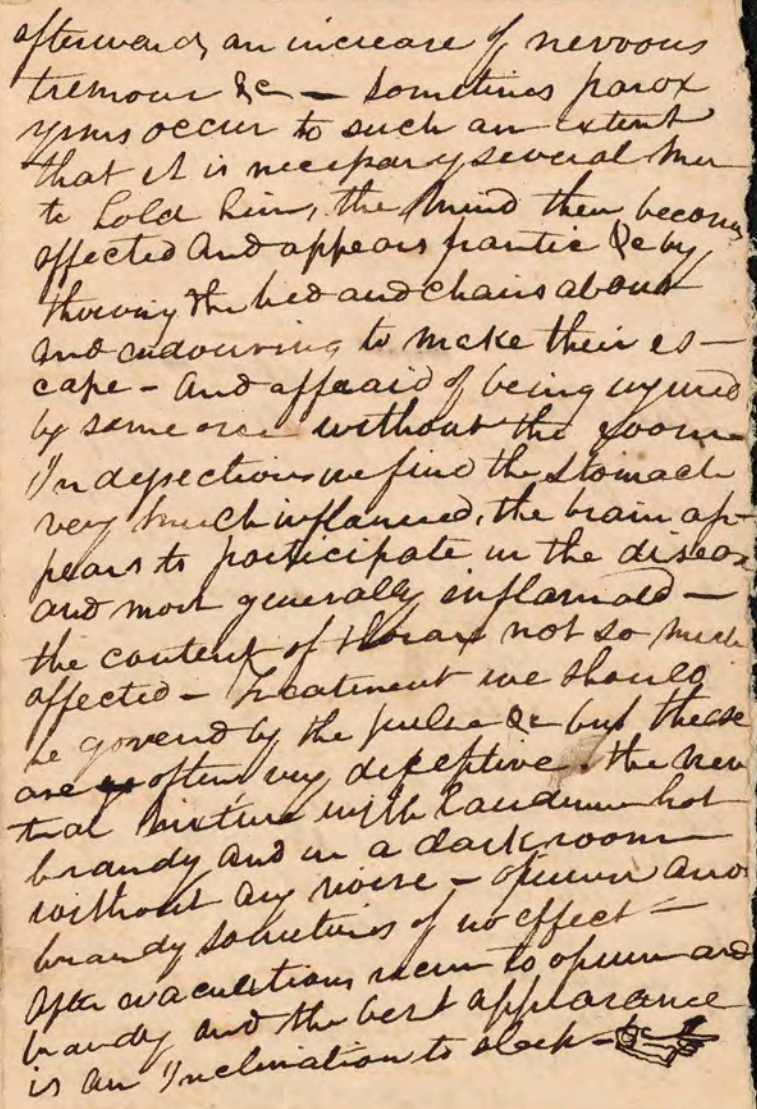 afterwards an increase of nervous
tremour &c — sometimes parox
ysms occur to such an extent
that it is necessary several men
to hold him, the mind then becoms
affected and appears frantic &c by
throwing the bed and chairs about
and endouvring to make their es-
cape - and affraid of being injured
by some one without the room
In desection we find the stomach
very much inflamed, the brain ap-
pears to participate in the diseas
and most generally inflamaed —
the content of thorax not so much
affected - Treatment we should
be governd by the pulse &c but these
are often very deceptive. the neu
tral mixture with laudunum hot
brandy and in a dark room
without any noise - opium and
brandy sometimes of no effect —
After evacuations recur to opium and
brandy and the best appearance
is an Inclination to sleep -